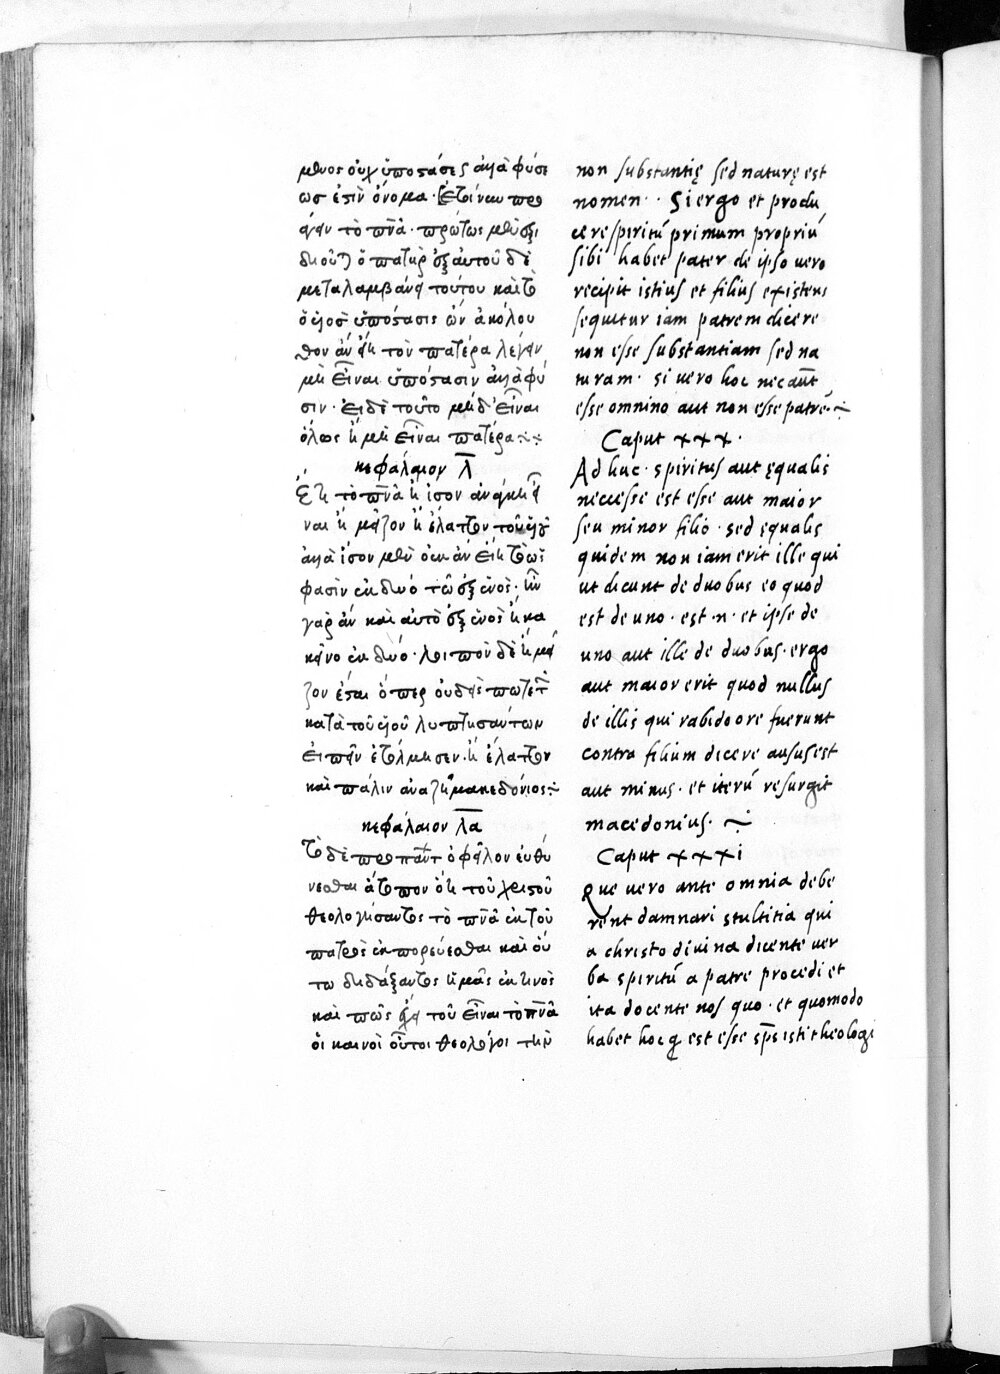 μενος οὐχ ὑποστάσεως ἀλλὰ φύσε
ως ἐστὶν ὄνομα · Εἰ τοίνυν προ
τὸ πνᾶ · πρώτως μὲν
ὁ πατὴρ ἐξ αὐτοῦ δὲ
μεταλαμβάνει τούτου καὶ
ὁ υἱὸς ὑπόστασις ὢν ἀκόλου
θον ἂν εἴη τὸν πατέρα λέγειν
μὴ εἶναι ὑπόστασιν ἀλλὰ φύ
σιν · εἰ δὲ τοῦτο μηδ' εἶναι
ὅλως ἢ μὴ εἶναι πατέρα
κεφάλαιον λ̅
Ἔτι τὸ πνᾶ ἢ ἴσον ἀνάγκη εἶ
ναι ἢ μεῖζον ἢ ἔλαττον τοῦ υἱοῦ
ἀλλὰ ἴσον μὲν οὐκ ἂν εἴη
φασὶν ἐκ δυό τῶ ἐξ ἑνὸς · ἦν
γὰρ ἂν καὶ αὐτὸ ἐξ ἑνὸς ἢ κα
κεῖνο ἐκ δυό · λοιπὸν δὲ ἢ μεῖ
ζον ἔσται ὅπερ οὐδεὶς πώποτε
κατὰ τοῦ υἱοῦ λυττησάντων
εἰπεῖν ἐτόλμησεν · ἢ ἔλαττον
καὶ πάλιν ἀναζῆ μακεδόνιος
κεφάλαιον λ̅α̅
Τὸ δὲ προ παντ ὀφεῖλον εὐθύ
νεσθαι ἄτοπον ὅτι τοῦ χριστοῦ
θεολογήσαντος τὸ πνᾶ ἐκ τοῦ
πατρὸς ἐκπορεύεσθαι καὶ οὕ
τω διδάξαντος ἡμᾶς ἐκ τινὸς
καὶ πῶς ἔχει τοῦ εἶναι τὸ πνᾶ
οἱ καινοὶ οὗτοι θεολόγοι τὴν
non substantię sed naturę est
nomen · Si ergo et produ
cere spiritū primum propriū
sibi habet pater de ipso vero
recipit istius et filius existens
sequitur iam patrem dicere
non esse substantiam sed na
turam · si vero hoc nec aūt
esse omnino aut non esse patrē
Caput xxx ·
Ad huc · spiritus aut ęqualis
necesse est esse aut maior
seu minor filio · sed ęqualis
quidem non iam erit ille qui
ut dicunt de duobus eo quod
est de uno · est ·n· et ipse de
uno aut ille de duobus · ergo
aut maior erit quod nullus
de illis qui rabido ore fuerunt
contra filium dicere ausus est
aut minus · et iterū resurgit
macedonius ·
Caput xxxi
Que vero ante omnia debe
rent damnari stultitia qui
a christo divina dicente ver
ba spiritū a patre procedi et
ita docente nos quo · et quomodo
habet hoc q est esse sps isti theologi